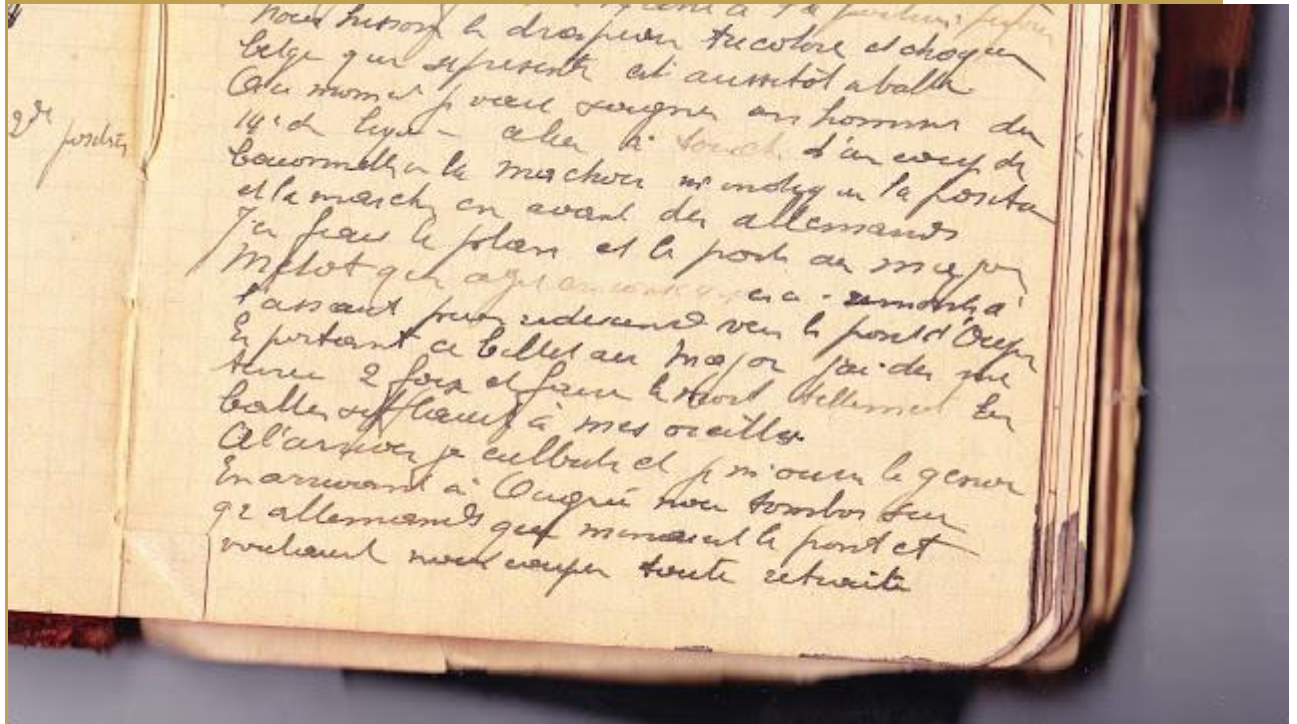 2de position
Nous hissons le drapeau tricolore et chaque
belge qui se présente est aussitôt abattu
Au moment je vais soigner un homme du
14e de ligne - celui a touché d'un coup de
baïonnette à la machoire m'indique la position
et la marche en avant des allemands
J'en fais le plan et le porte au major
Melot qui a remonte à
l'assaut puis redescend vers le pont d'Ougrée
En portant ce billet au Major j'ai du me
terrer 2 fois et faire le mort tellement les
balles sifflaient à mes oreilles
A l'arrivée je culbute et je m'ouvre le genou
En arrivant à Ougrée nous tombons sur
92 allemands qui minaient le pont et
voulaient nous couper toute retraite